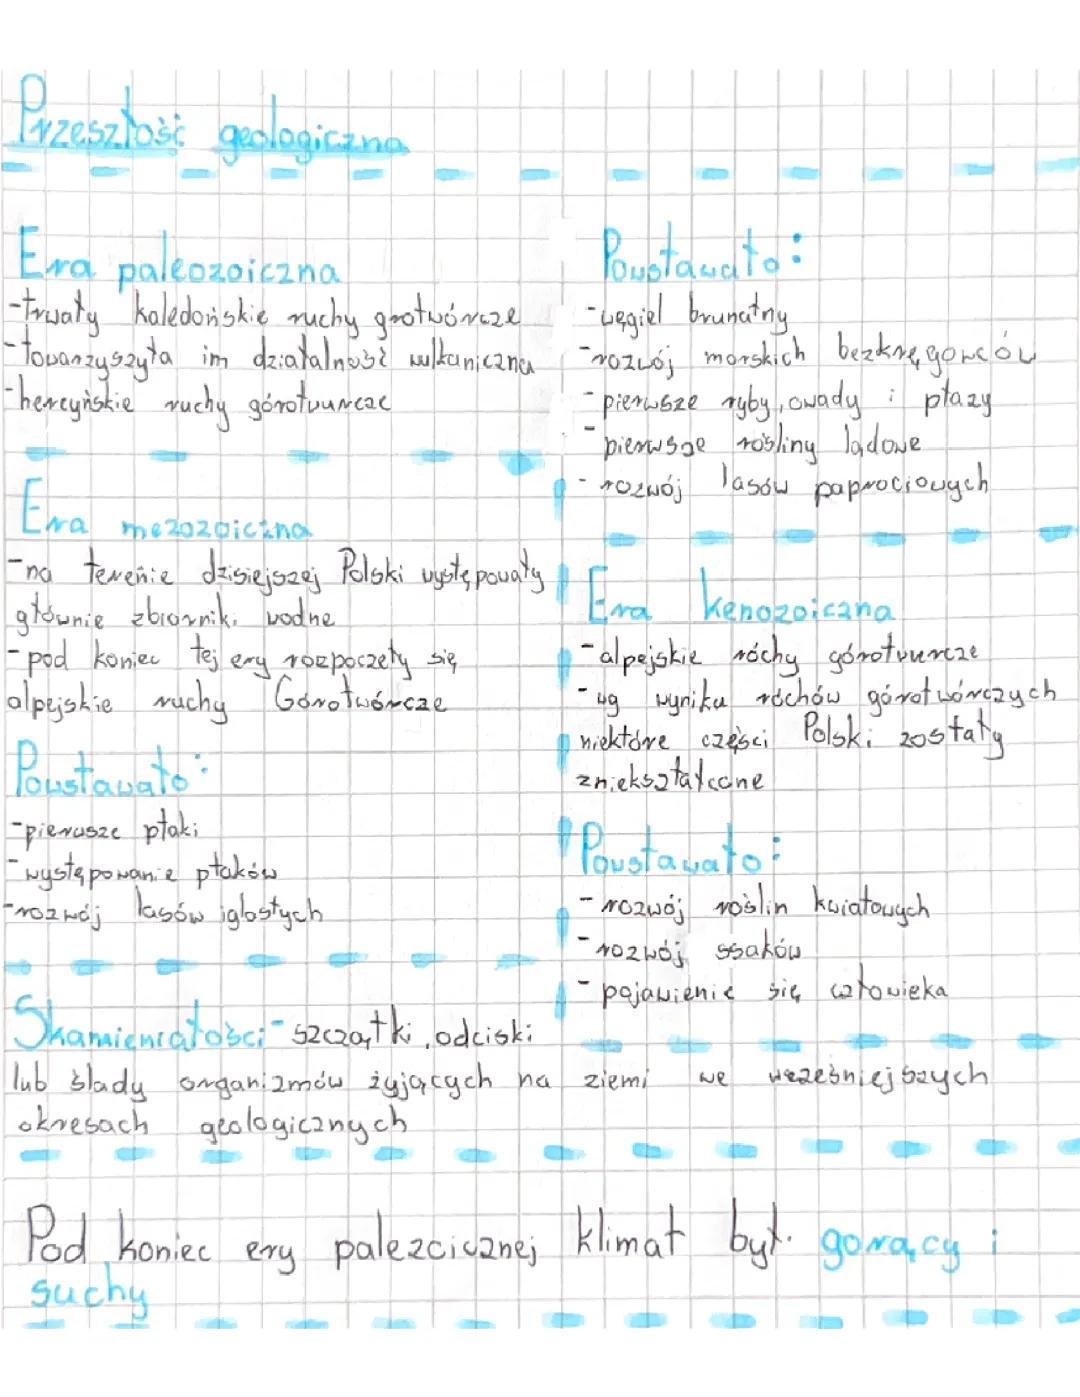 Przeszłość geologiczna
Era paleozoiczna
-trwały kaledońskie ruchy grotwórcze
-towarzyszyła im działalność wulkaniczna
-hercyńskie ruchy górotwurcze
Powstawało:
-węgiel brunatny
-rozwój morskich bezkręgowców
-pierwsze ryby, owady i płazy
-pierwsze rośliny lądowe
-rozwój lasów paprociowych
Era mezozoiczna
-na terenie dzisiejszej Polski występowały
głównie zbiorniki wodne
-pod koniec tej ery rozpoczęły się
alpejskie ruchy Górotwórcze
Powstawało:
-pierwsze ptaki
-występowanie ptaków
-rozwój lasów iglastych
Era kenozoiczna
-alpejskie róchy górotwurcze
-wg wyniku róchów górotwórczych
niektóre części Polski zostały
zniekształcone
Powstawało:
-rozwój roślin kwiatowych
-rozwój ssaków
-pojawienie się człowieka
Skamieniałości-szczątki, odciski
lub ślady organizmów żyjących na ziemi we wcześniejszych
okresach geologicznych
Pod koniec ery palezcicznej klimat był. gorący i
suchy